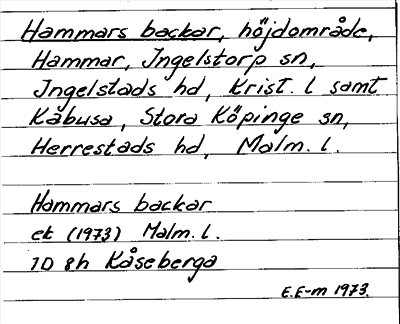 Hammars backar, höjdområde,
Hammar, Ingelstorp sn,
Ingelstads hd, Krist. l samt
Kabusa, Stora Köpinge sn,
Herrestads hd, Malm. l.
Hammars backar
ek (1973) Malm. l.
1D 8h Kåseberga
E.E-m 1973.